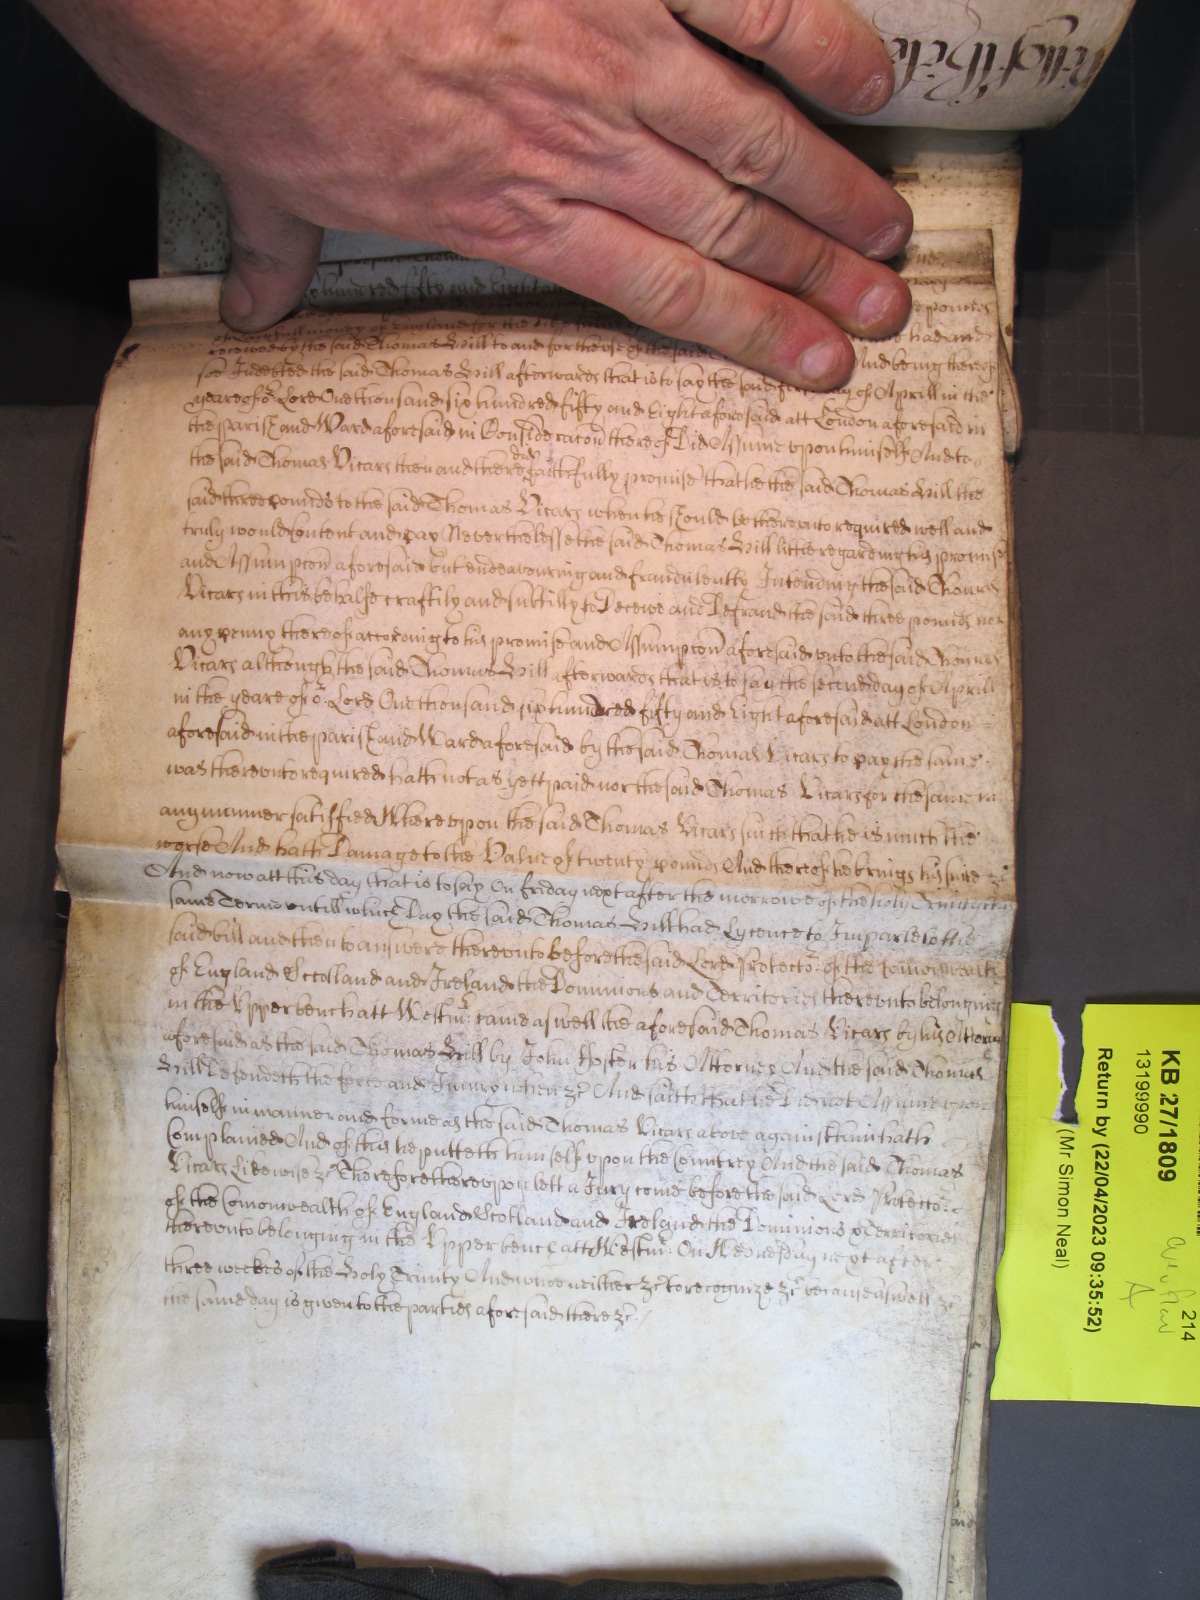 hundred fifty and Eight
of lawfull money of England for the like summe
received by the said Thomas Hill to and for the use of the said
soe Indebted the said Thomas Hill afterwards that is to say the said day of Aprill in the
yeare of or Lord One thousand six hundred fifty and Eight aforesaid att London aforesaid in
the parish and Ward aforesaid in Consideracon thereof Did Assume upon himself And to
the said Thomas Vicars then and there faithfully promise that he the said Thomas Hill the
said three pounds to the said Thomas Vicars when he should be thereunto required well and
truly would content and pay Neverthelesse the said Thomas Hill little regarding his promise
and Assumpcon aforesaid but endeavouring and fraudulently Intending the said Thomas
Vicars in this behalfe craftily and subtilly to Deceive and Defraud the said three pounds nor
any penny thereof according to his promise and Assumpcon aforesaid unto the said Thomas
Vicars although the said Thomas Hill afterwards that is to say the second day of Aprill
in the yeare of or Lord One thousand six hundred fifty and Eight aforesaid att London
aforesaid in the parish and Ward aforesaid by the said Thomas Vicars to pay the same
was thereunto required hath not as yett paid nor the said Thomas Vicars for the same in
any manner satisfied Whereupon the said Thomas Vicars saith that he is much the
worse And hath Damage to the Value of twenty pounds And thereof he brings his suite &c
And now att this day that is to say On friday next after the morrowe of the holy Trinity
same Terme untill which Day the said Thomas Hill had Lycence to Imparle to the
said bill and then to answere thereunto before the said Lord Protector of the Comonwealth
of England Scotland and Ireland the Dominions and Territories thereunto belonging
in the Upper bench att Westmr came aswell the aforesaid Thomas Vicars by his Attorney
aforesaid as the said Thomas Hill by John Foster his Attorney And the said Thomas
Hill Defendeth the force and Injury when &c And saith that he Did not Assume upon
himself in manner and forme as the said Thomas Vicars above against him hath
Complained And of this he putteth himself upon the Countrey And the said Thomas
Vicars Likewise &c Therefore thereupon lett a Jury come before the said Lord Protector
of the Comonwealth of England Scotland and Ireland the Dominions & Territories
thereunto belonging in the Upper bench att Westmr On Wednesday next after
three weekes of the Holy Trinity And who neither &c to recognize &c because aswell &c
the same day is given to the parties aforesaid there &c
KB 27/1809
13199990
Return by (22/04/2023 09:35:52)
(Mr Simon Neal)
214